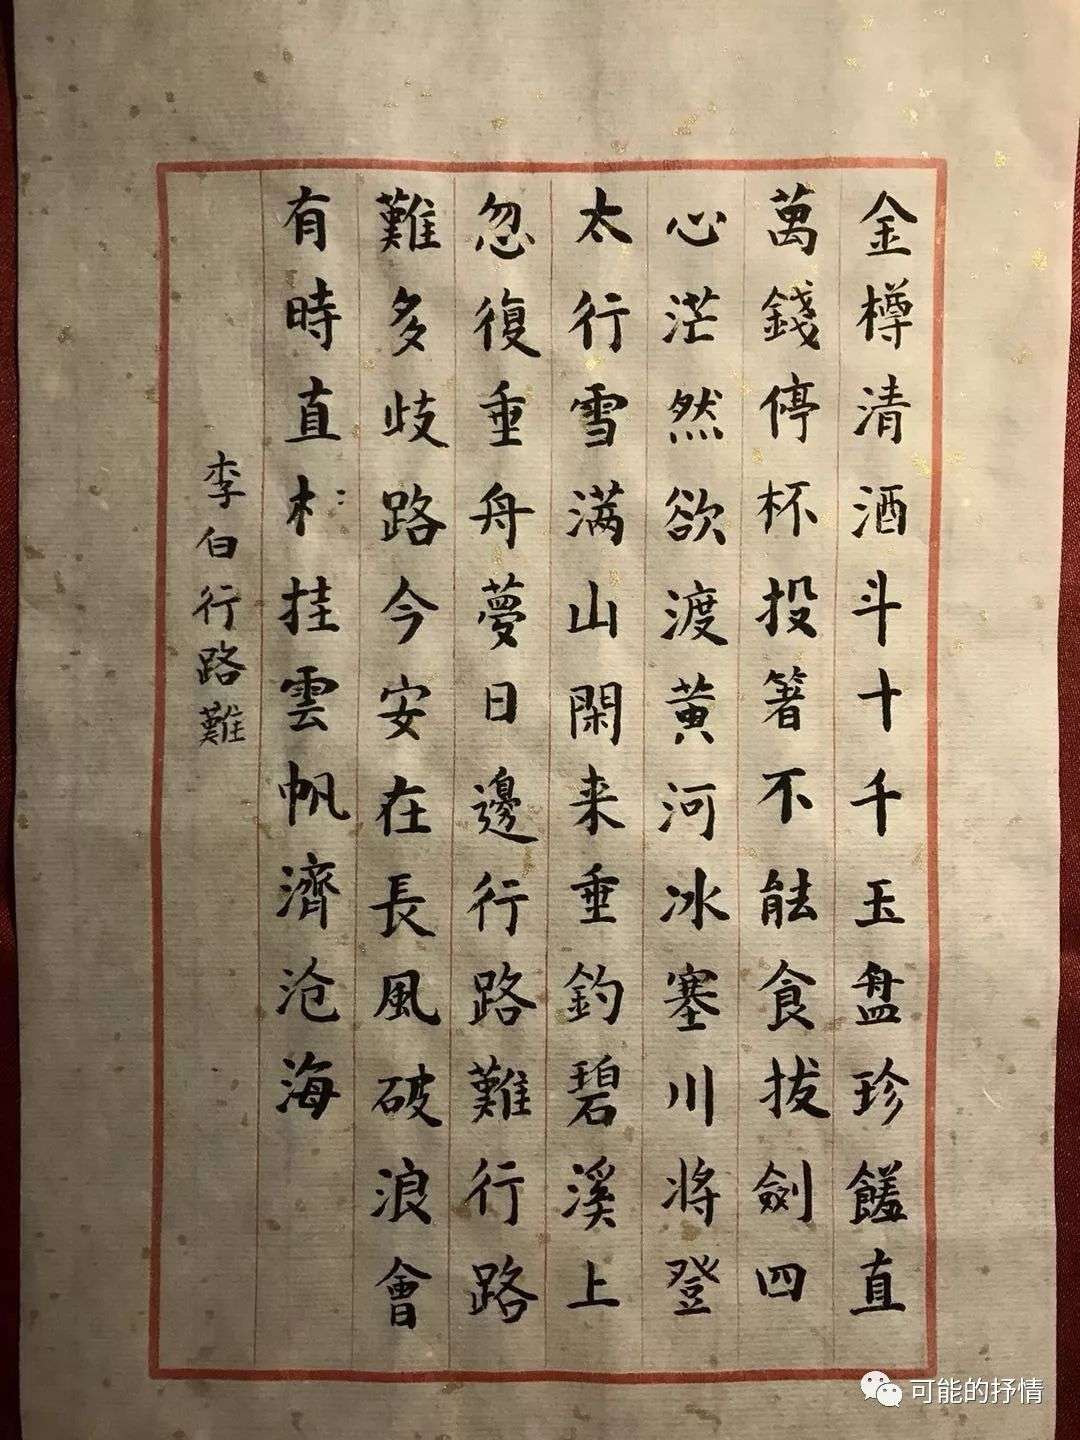 金樽清酒斗十千玉盘珍饈直
萬錢停杯投箸不能食拔劍四
心茫然欲渡黄河冰塞川将登
太行雪满山閑来垂釣碧溪上
忽復垂舟夢日邊行路難行路
難多歧路今安在長風破浪會
有時直挂雲帆濟沧海
李白行路難
可能的抒情